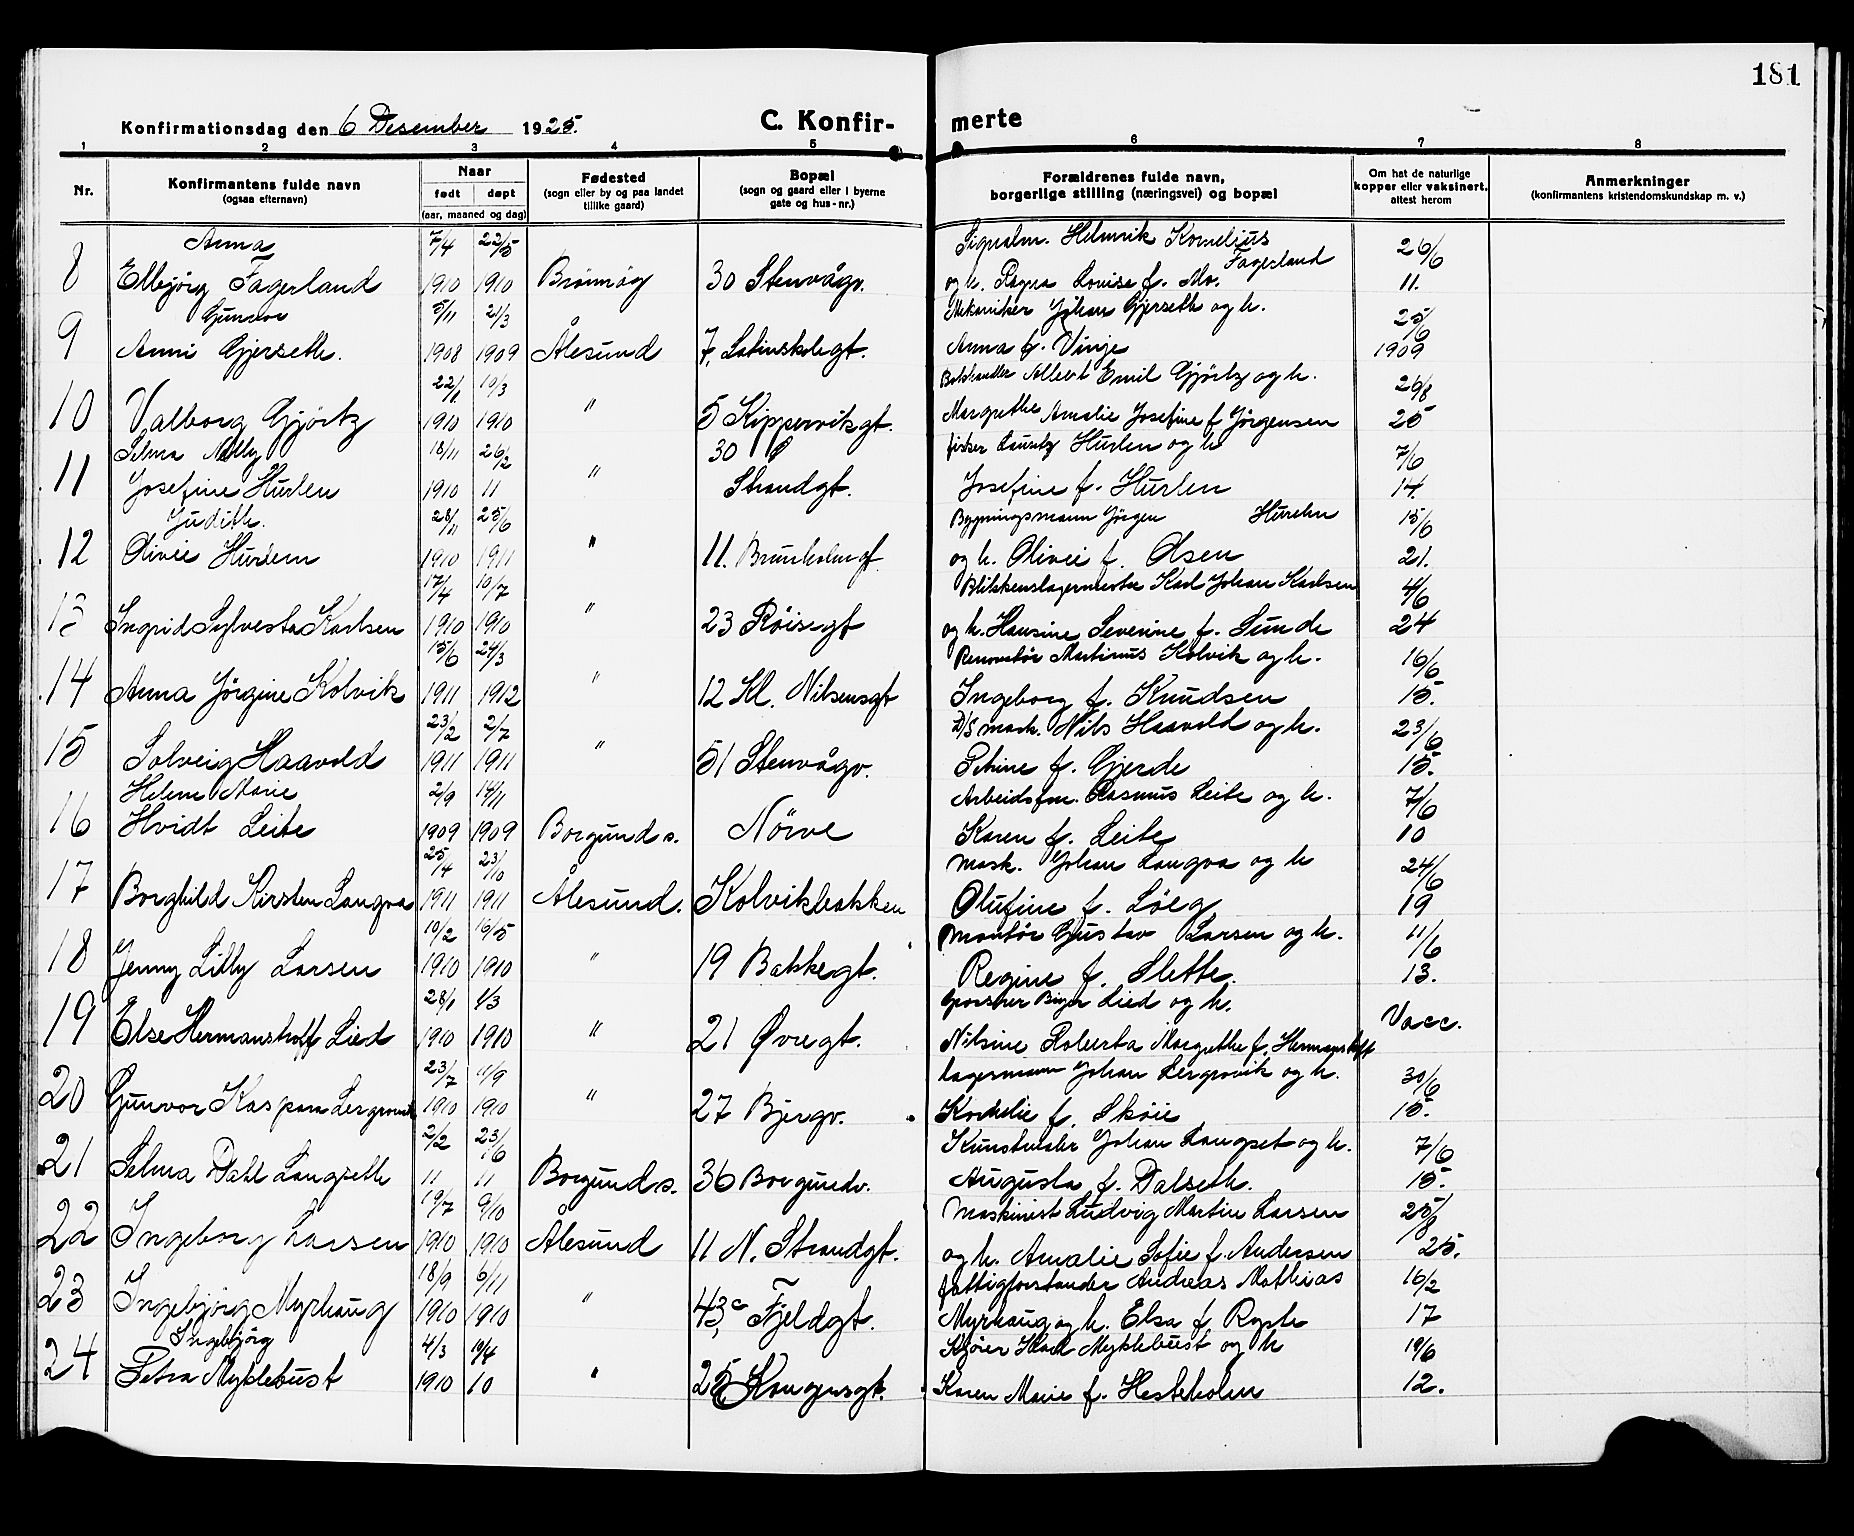 181
Konfirmationsdag den 6 Desember 1925.
C. Konfirmerte
1 2 3 4 5 6 7 8
Nr.
Konfirmantens fulde navn
(ogsaa efternavn)
Naar
født døpt
(aar, maaned og dag)
Fødested
(sogn eller by og paa landet
tillike gaard)
Bopæl
(sogn og gaard eller i byerne
gate og hus-nr.)
Forældrenes fulde navn,
borgerlige stilling (næringsvei) og bopæl
Om hat de naturlige
kopper eller vaksinert,
attest herom
Anmerkninger
(konfirmantens kristendomskundskap m. v.)
Anna 7/4 22/5 Henrik Kornelius 26/6
8 Ellbjörg Fagerland 1910 1910 30 Stenvågv. og h. Ragna Lovise f. Mo. Fagerland 11.
Gunvor 5/11 21/3 Mekaniker Johan Gjerseth og h. 25/6
9 Anni Gjerseth. 1908 1909 Ålesund 7, Latinskolegt. Anna f. Vinje 1909
22/1 10/3 Albert Emil Gjörtz og h. 26/8
10 Valborg Gjörtz 1910 1910 " 5 Kippervikgt. Margrethe Amalie Josefine f Jörgensen 25
Selma Nelly 18/11 26/2 30 Ø fisker Lauritz Hurlen og h 7/6
11 Josefine Hurlen 1910 11 " Strandgt. Josefine f. Hurlen 14.
Judith. 28/11 25/6 Bygningsmann Jörgen Hurlen 15/6
12 Olivie Hurlen 1910 1911 " 11. Brunholmgt. og h. Olivie f. Olsen 21.
17/4 10/7 Karl Johan Karlsen 4/6
13 Ingrid Sylvesta Karlsen 1910 1910 " 23 Röisegt og h. Hansine Severine f. Sunde 24
15/6 24/3 Renovatör Martinus Kolvik og h. 16/6
14 Anna Jörgine Kolvik 1911 1912 " 12 Kl. Nilsensgt Ingeborg f. Knudsen 15.
23/2 2/7 D/S mask. Nils Haavold og h. 23/6
15 Solveig Haavold 1911 1911 " 51 Stenvågv. Petrine f. Gjerde 15.
Helene Marie 2/9 14/11 Arbeidsfor. Rasmus Leite og h. 7/6
16 Hvidt Leite 1909 1909 Borgund s. Nörve Karen f. Leite 10
25/4 23/10 Mask. Johan Langva og h 24/6
17 Borghild Kirsten Langva 1911 1911 Ålesund. Kolvikbakken Olufine f. Löeg 19
10/2 16/5 Montör Gustav Larsen og h. 11/6
18 Jenny Lilly Larsen 1910 1910 " 19 Bakkegt. Regine f. Slette. 13.
28/1 1/3 Grosserer Birger Lied og h. Vacc.
19 Else Hermanshoff Lied 1910 1910 " 21 Øvregt. Nilsine Roberta Margrethe f. Hermanshoff
23/7 11/9 Lagermann Johan Lergrovik og h. 30/6
20 Gunvor Kaspara Lergrovik 1910 1910 " 27 Bjergv. Kornelie f. Sköie 15.
2/2 23/6 Kunstmaler Johan Langset og h. 7/6
21 Selma Dahl Langseth 11 11 Borgund s. 36 Borgundv. Augusta f. Dalseth. 15.
19/7 9/10 Maskinist Ludvig Martin Larsen 25/8
22 Ingeborg Larsen 1910 1910 Ålesund 11 N. Strandgt. og h. Amalie Sofie f. Andersen 25.
18/9 6/11 fattigforstander Andreas Mathias 16/2
23 Ingebjörg Myrhaug 1910 1910 " 43c Fjeldgt. Myrhaug og h. Elsa f. Rypte 17
Ingebjörg 4/3 19/4 Kjörer Karl Myklebust og h 19/6
24 Petra Myklebust 1910 10 " 25 Kongensgt. Karen Marie f. Hesteholm 12.